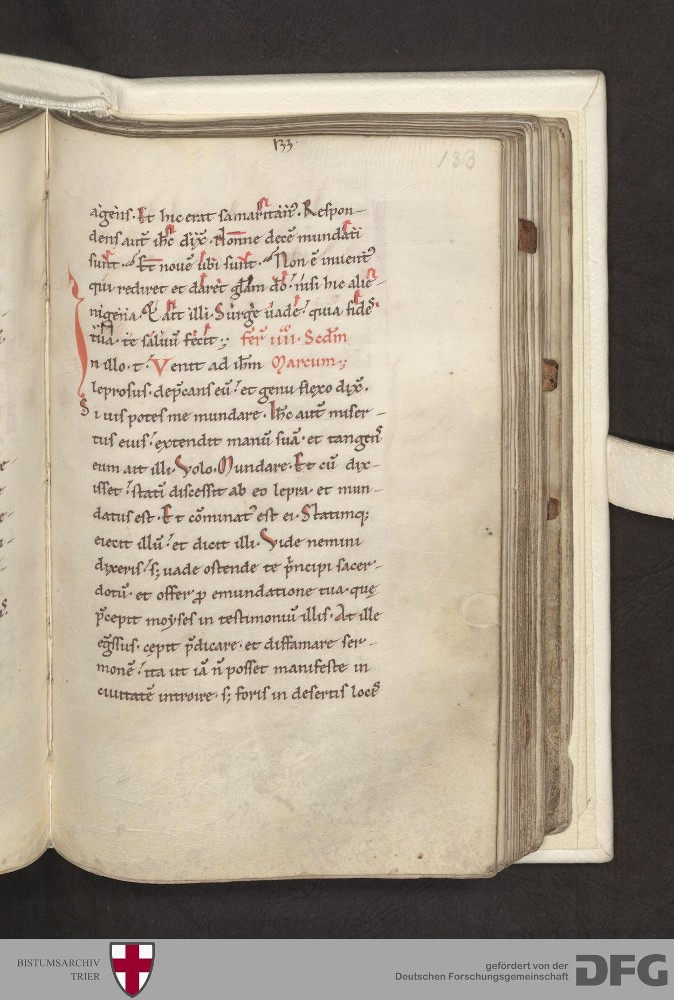 133
133
agens. Et hic erat samaritan᷒. Respon-
dens aut̄ ih̄c dix̄. Nonne decē mundati
sunt. Et nouē ubi sunt. Non ē inuent᷒
qui rediret et daret gl̄am dō. nisi hic alie-
nigena. Et ait illi. Surge uade. quia fides
tua te saluū fecit. fer̄ iiii. Scdm̄
n illo. t. Venit ad ih̄m Marcum.
leprosus. dep̄cans eū. et genu flexo dix̄.
Si uis potes me mundare. Ih̄c aut̄ miser-
tus eius. extendit manū suā. et tangens
eum ait illi. Volo. Mundare. Et cū dix-
isset. statī discessit ab eo lepra. et mun-
datus est. Et cōminat᷒ est ei. Statimq;
eiecit illū. et dicit illi. Vide nemini
dixeris. s; uade ostende te p̄ncipi sacer-
dotū. et offer p̄ emundatione tua. quę
p̄cepit moyses in testimoniū illis. At ille
eḡssus. cępit p̄dicare. et diffamare ser-
monē. ita ut iā n̄ posset manifeste in
ciuitatē introire. s; foris in desertis locis
BISTUMSARCHIV
TRIER
gefördert von der
Deutschen Forschungsgemeinschaft
DFG